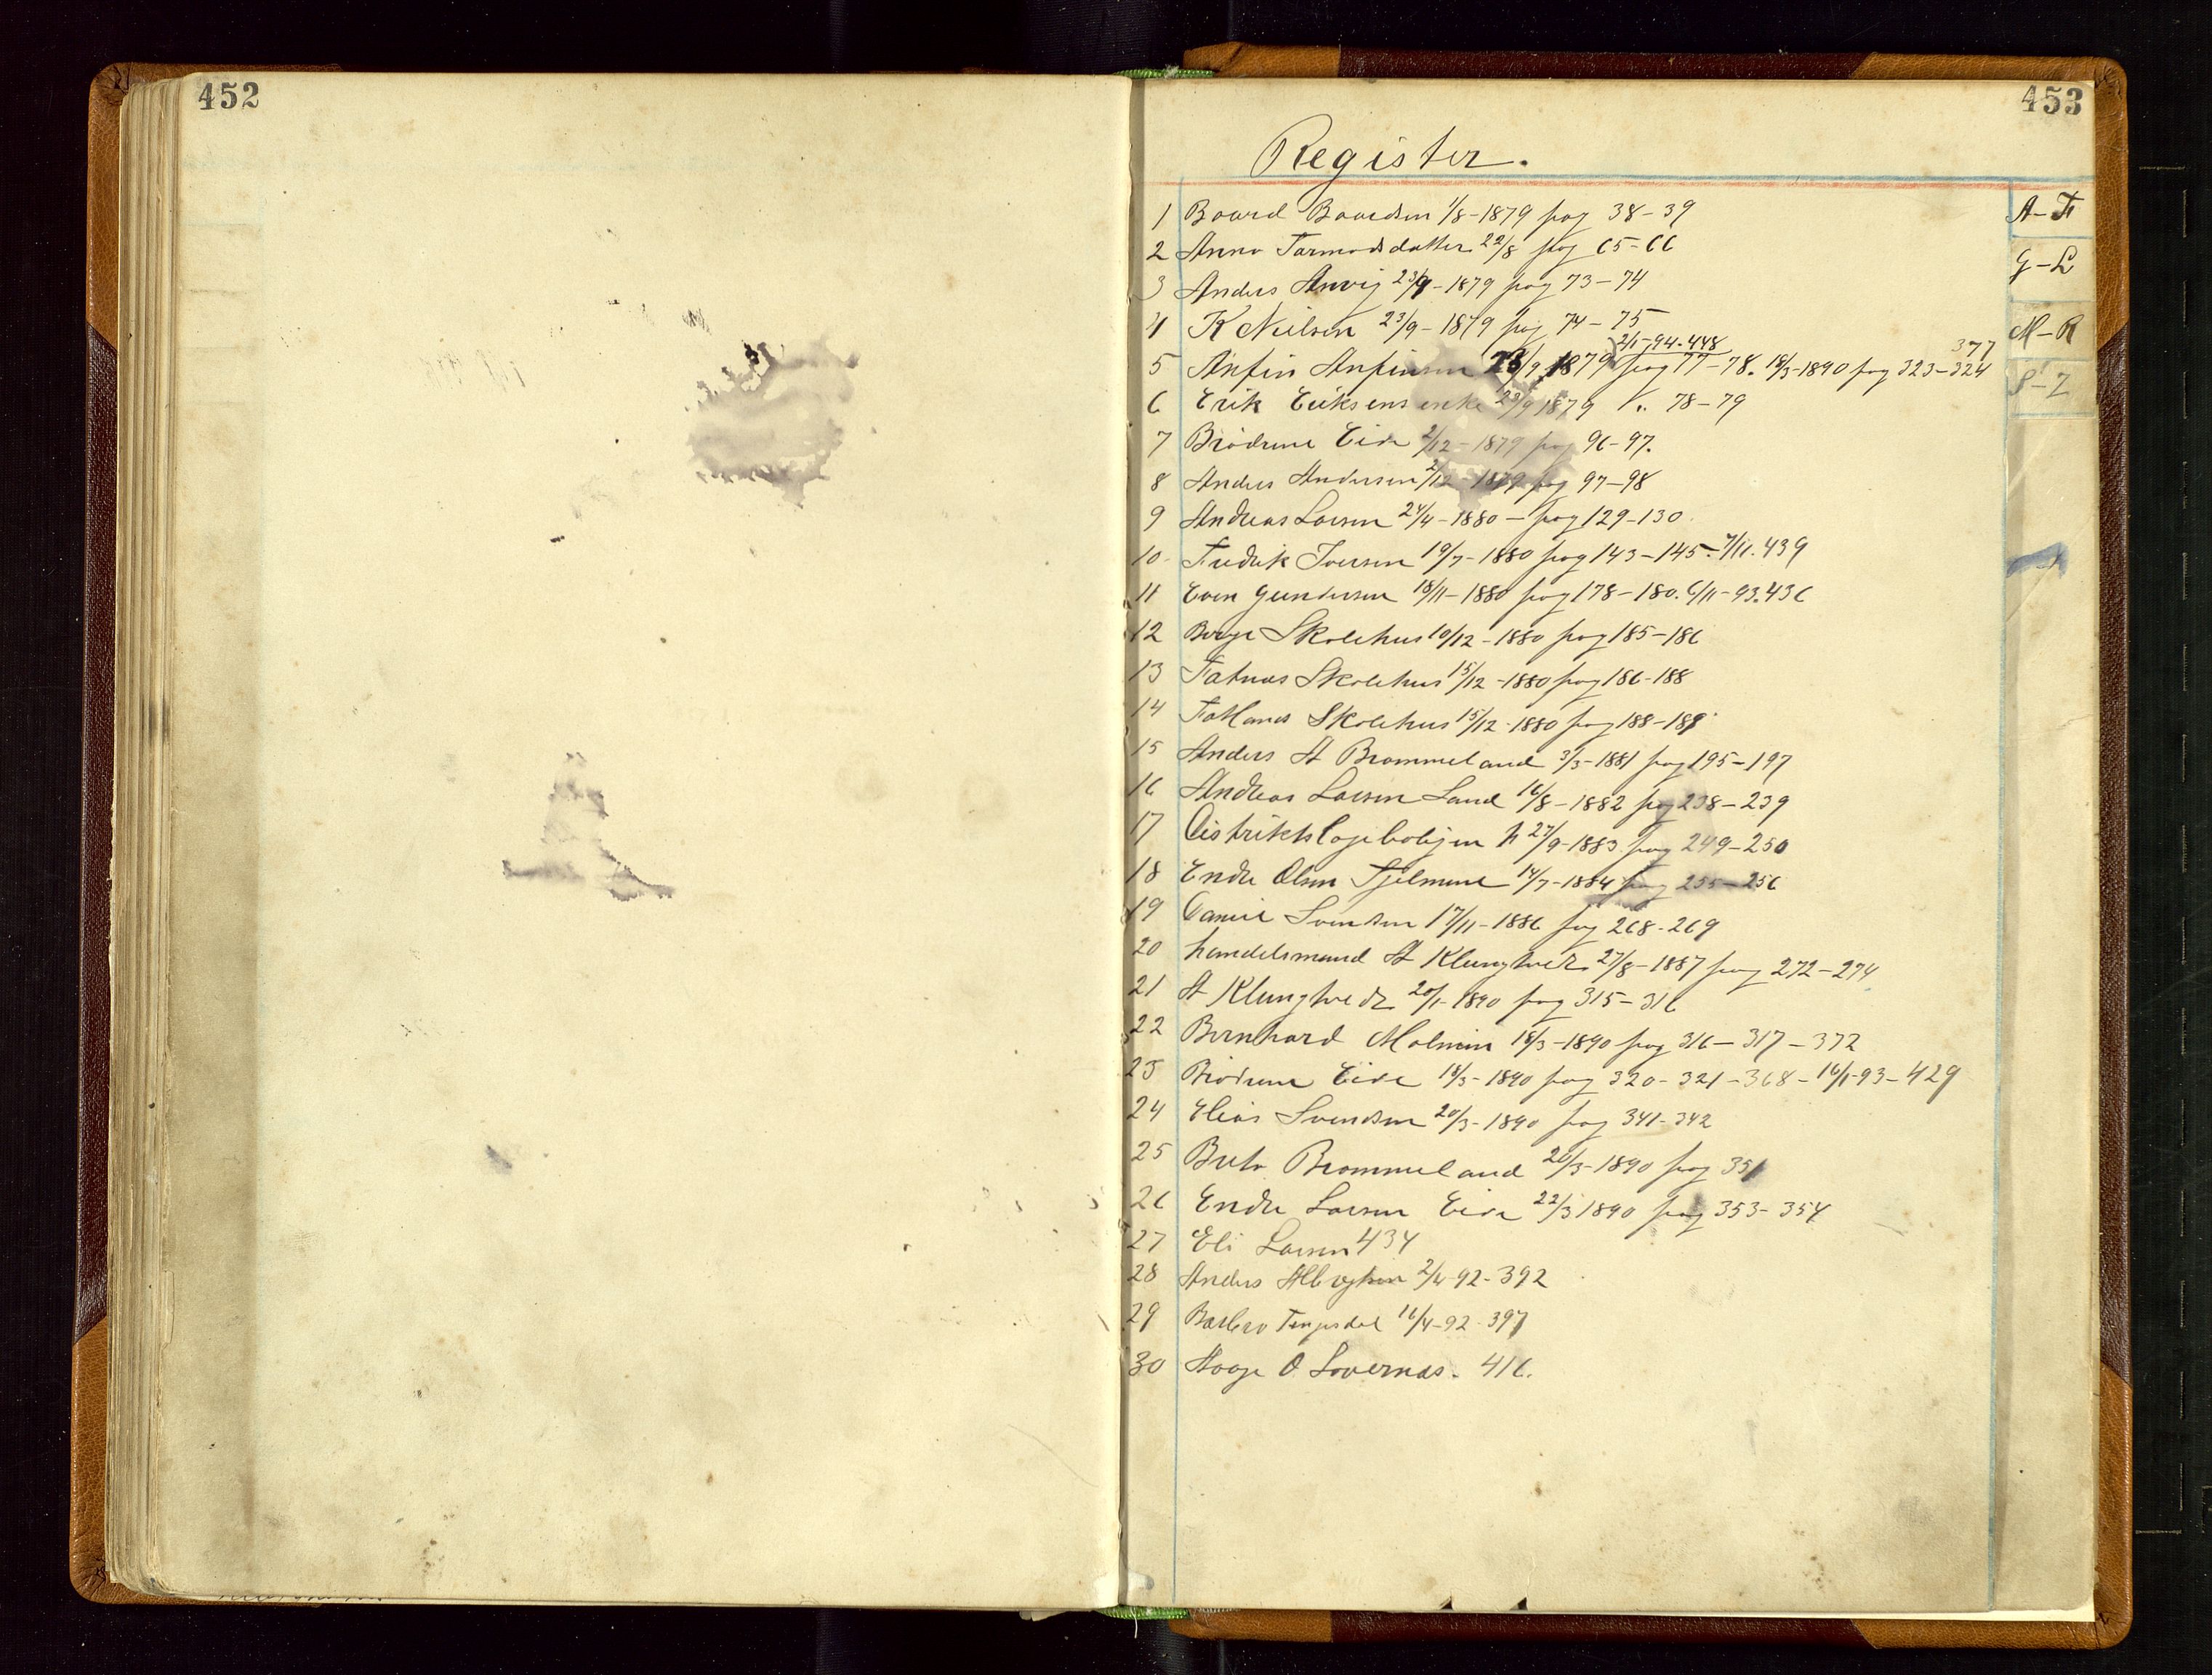 452
453
Register.
A-F
G-L
M-R
S-Z
1 Baard Baardsen 1/8-1879 pag 38-39
2 Anna Tormodsdatter 22/8 pag 65-66
3 Anders Anvig 23/9-1879 pag 73-74
4 K Nielsen 23/9-1879 pag 74-75
2/1-94-448 377
5 Anfin Anfinsen 23/9 1879 pag 77-78. 18/3-1890 pag 323-324
6 Erik Eriksens enke 29/9 1879 " 78-79
7 Brødrene Eide 2/12-1879 pag 96-97.
8 Anders Andersen 2/12-1879 pag 97-98
9 Andreas Larsen 24/4-1880 - pag 129-130
10 Fredrik Iversen 19/7-1880 pag 143-145-7/11.439
11 Even Gundersen 18/11-1880 pag 178-180. 6/11-93.436
12 Berge Skolehus 10/12-1880 pag 185-186
13 Fatnæs Skolehus 15/12-1880 pag 186-188
14 Fatlands Skolehus 15/12-1880 pag 188-189
15 Anders A Brommeland 3/3-1881 pag 195-197
16 Andreas Larsen Sand 16/8-1882 pag 238-239
17 Distriktslægeboligen 27/9-1883 pag 249-250
18 Endre Olsen Fjelmme 14/7-1884 pag 255-256
19 Daniel Svendsen 17/11-1886 pag 268-269
20 Handelsmand A Klungtvedt 27/8-1887 pag 272-274
21 A Klungtvedt 20/1-1890 pag 315-316
22 Bernhard Malmin 18/3-1890 pag 316-317-372
23 Brødrene Eide 18/3-1890 pag 320-321-368-16/1-93-429
24 Elias Svendsen 20/3-1890 pag 341-342
25 Brita Brommeland 20/3-1890 pag 351
26 Endre Larsen Eide 22/3 1890 pag 353-354
27 Eli Larsen 434
28 Anders 2/4-92-392
29 Barbro Tengesdal 16/4-92-397
30 Aage O Lovernæs. 416.